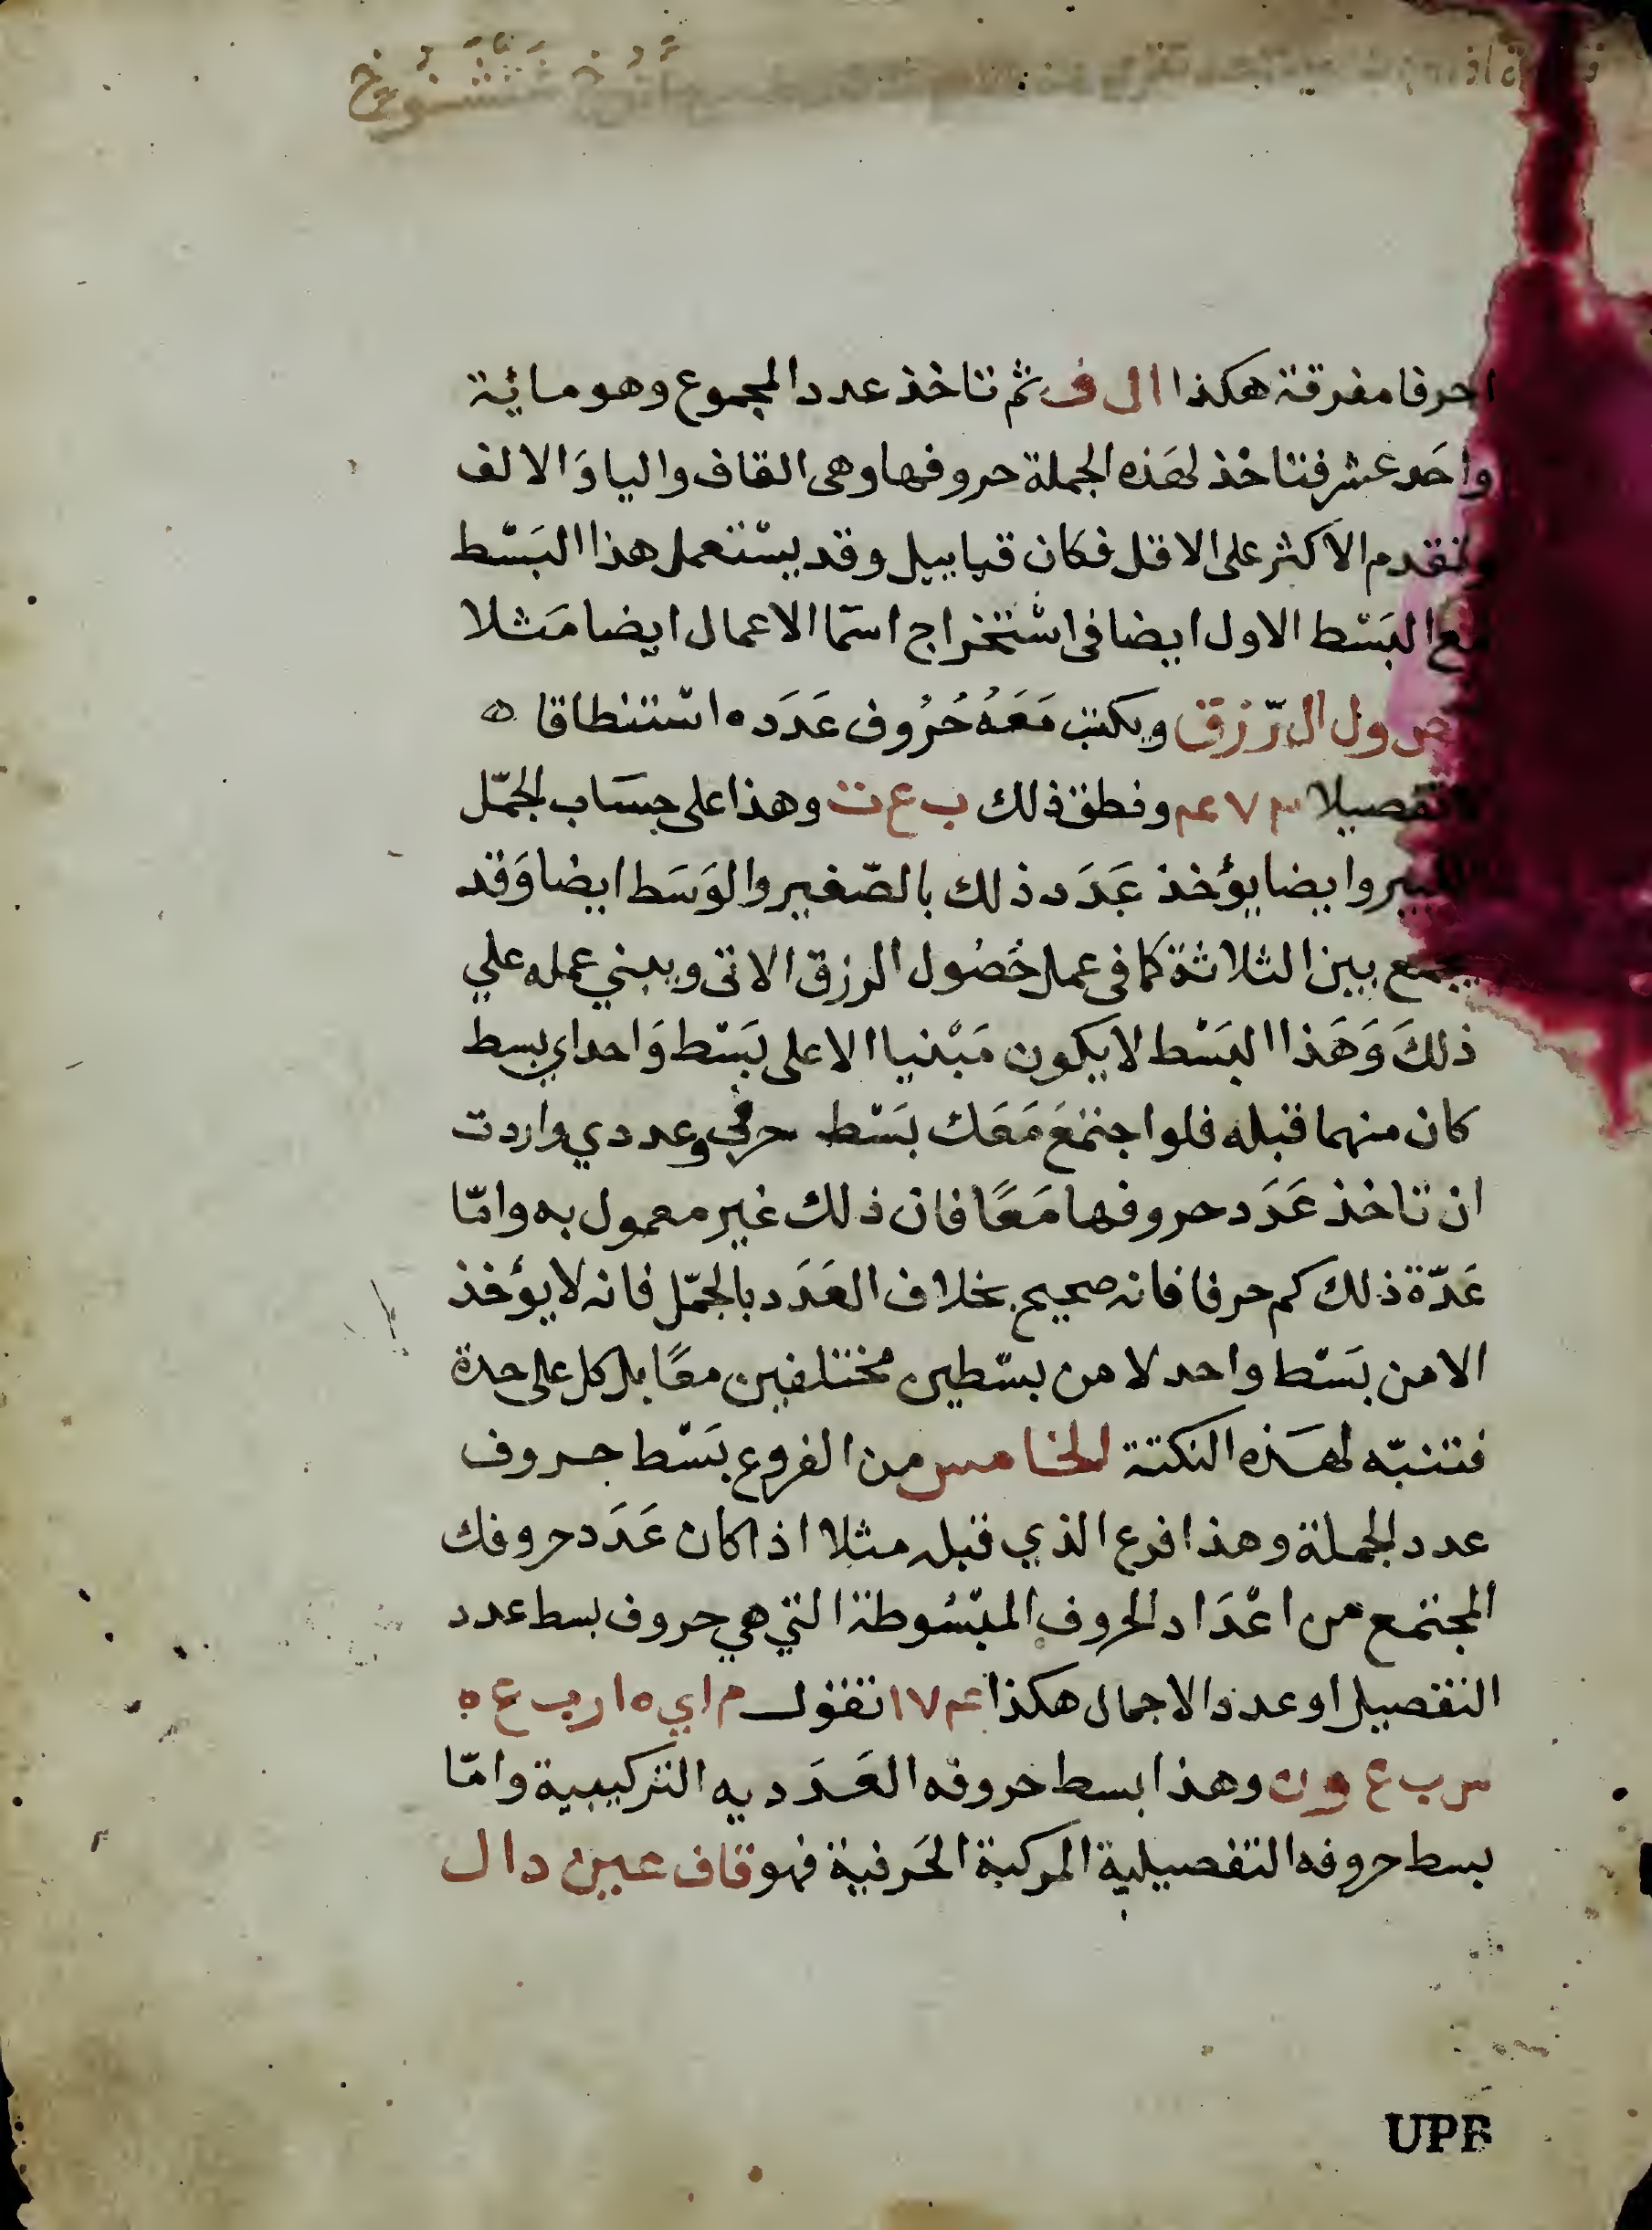 احرفا مفرقة هكذا ا ل ف ثم تاخذ عدد المجموع وهو مائة
واحَد عشر فتاخذ لهَذه الجملة حروفها وهى القاف واليا وَالالف
وتقدم الاكثر على الاقل فكان قيا ييل وقد يسْتعمل هذا البَسْط
مع البَسْط الاول ايضا فى اسْتخراج اسمَا الاعمال ايضا مَثلا
ص و ل ال رّ ز ق ويكتب مَعَهُ حُرُوف عَدَده اسْتنطاقا ه
تفصيلا ٧ ونطق ذلك ب ع ت وهذا على حسَاب الجمّل
وايضا يؤخذ عَدَد ذلك بالصّغير والوَسَط ايضا وَقد
يجمع بين الثلاثة كما فى عمل حُصُول الرزق الاتى ويبني عمله علي
ذلكَ وَهَذا البَسْط لا يكون مَبْنيا الا على بَسْط وَاحد اي بسط
كان منهما قبله فلو اجتمَعَ مَعَك بَسْط حرفي وعددي واردت
ان تاخذ عَدَد حروفها مَعًا فان ذلك غير معمول به وامّا
عَدّة ذلكَ كم حرفا فانه صحيح بخلاف العَدَد بالجمّل فانه لا يؤخذ
الا من بَسْط واحد لا من بسْطين مختلفين معًا بل كل على حدة
فتنبّه لهَذه النكتة الخامس من الفروع بَسْط حروف
عدد الجملة وهذا فرع الذي قبله مثلا اذا كان عَدَد حروفك
المجتمع من اعْدَاد الحروف المبْسُوطة التي هي حروف بسط عدد
التفصيل او عدد الاجمال هكذا ١٧٤ تقول م ا ي ه ا ر ب ع ه
س ب ع و ن وهذا بسط حروفه العَدَديه التركيبية وامّا
بسط حروفه التفصيلية المركبة الحَرفية فهو قاف عين دال
UPB